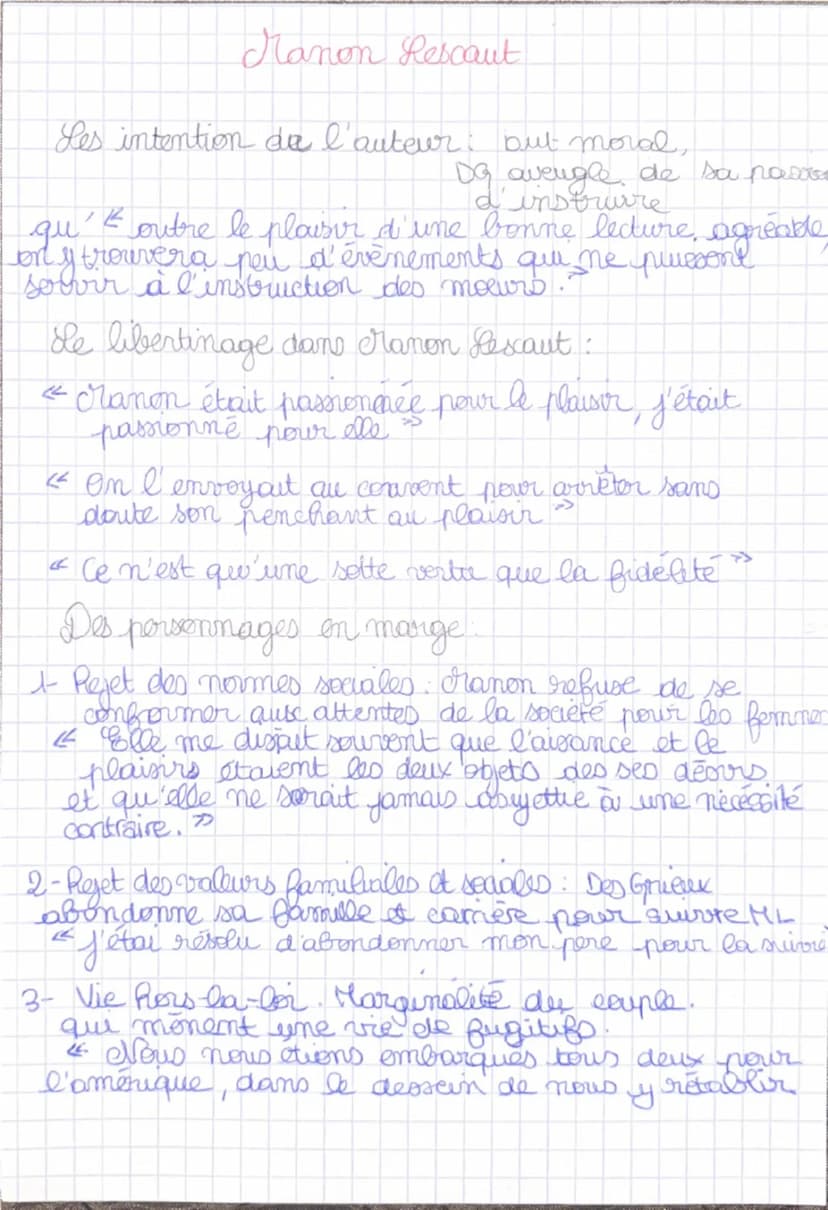 Manon Lescaut
Les intention de l'auteur : but moral,
DG aveugle de sa passion
d'instruire
qu' « outre le plaisir d'une bonne lecture agréable,
on y trouvera peu d'évènements qui ne puissent
servir à l'instruction des moeurs. »
Le libertinage dans Manon Lescaut :
« Manon était passionnée pour le plaisir, j'était
passionné pour elle »
« On l'envoyait au couvent pour arrêter sans
doute son penchant au plaisir »
« Ce n'est qu'une sotte vertu que la fidélité »
Des personnages en marge :
1- Rejet des normes sociales : Manon refuse de se
conformer aux attentes de la société pour les femmes
« Elle me disait souvent que l'aisance et le
plaisirs étaient les deux objets des ses désirs
et qu'elle ne serait jamais assujettie à une nécessité
contraire. »
2- Rejet des valeurs familiales et sociales : Des Grieux
abandonne sa famille et carrière pour suivre ML
« J'étai résolu d'abandonner mon père pour la suivre
3- Vie hors-la-loi. Marginalité du couple.
qui mènent une vie de fugitifs.
« Nous nous étions embarqués tous deux pour
l'amérique, dans le dessein de nous y rétablir